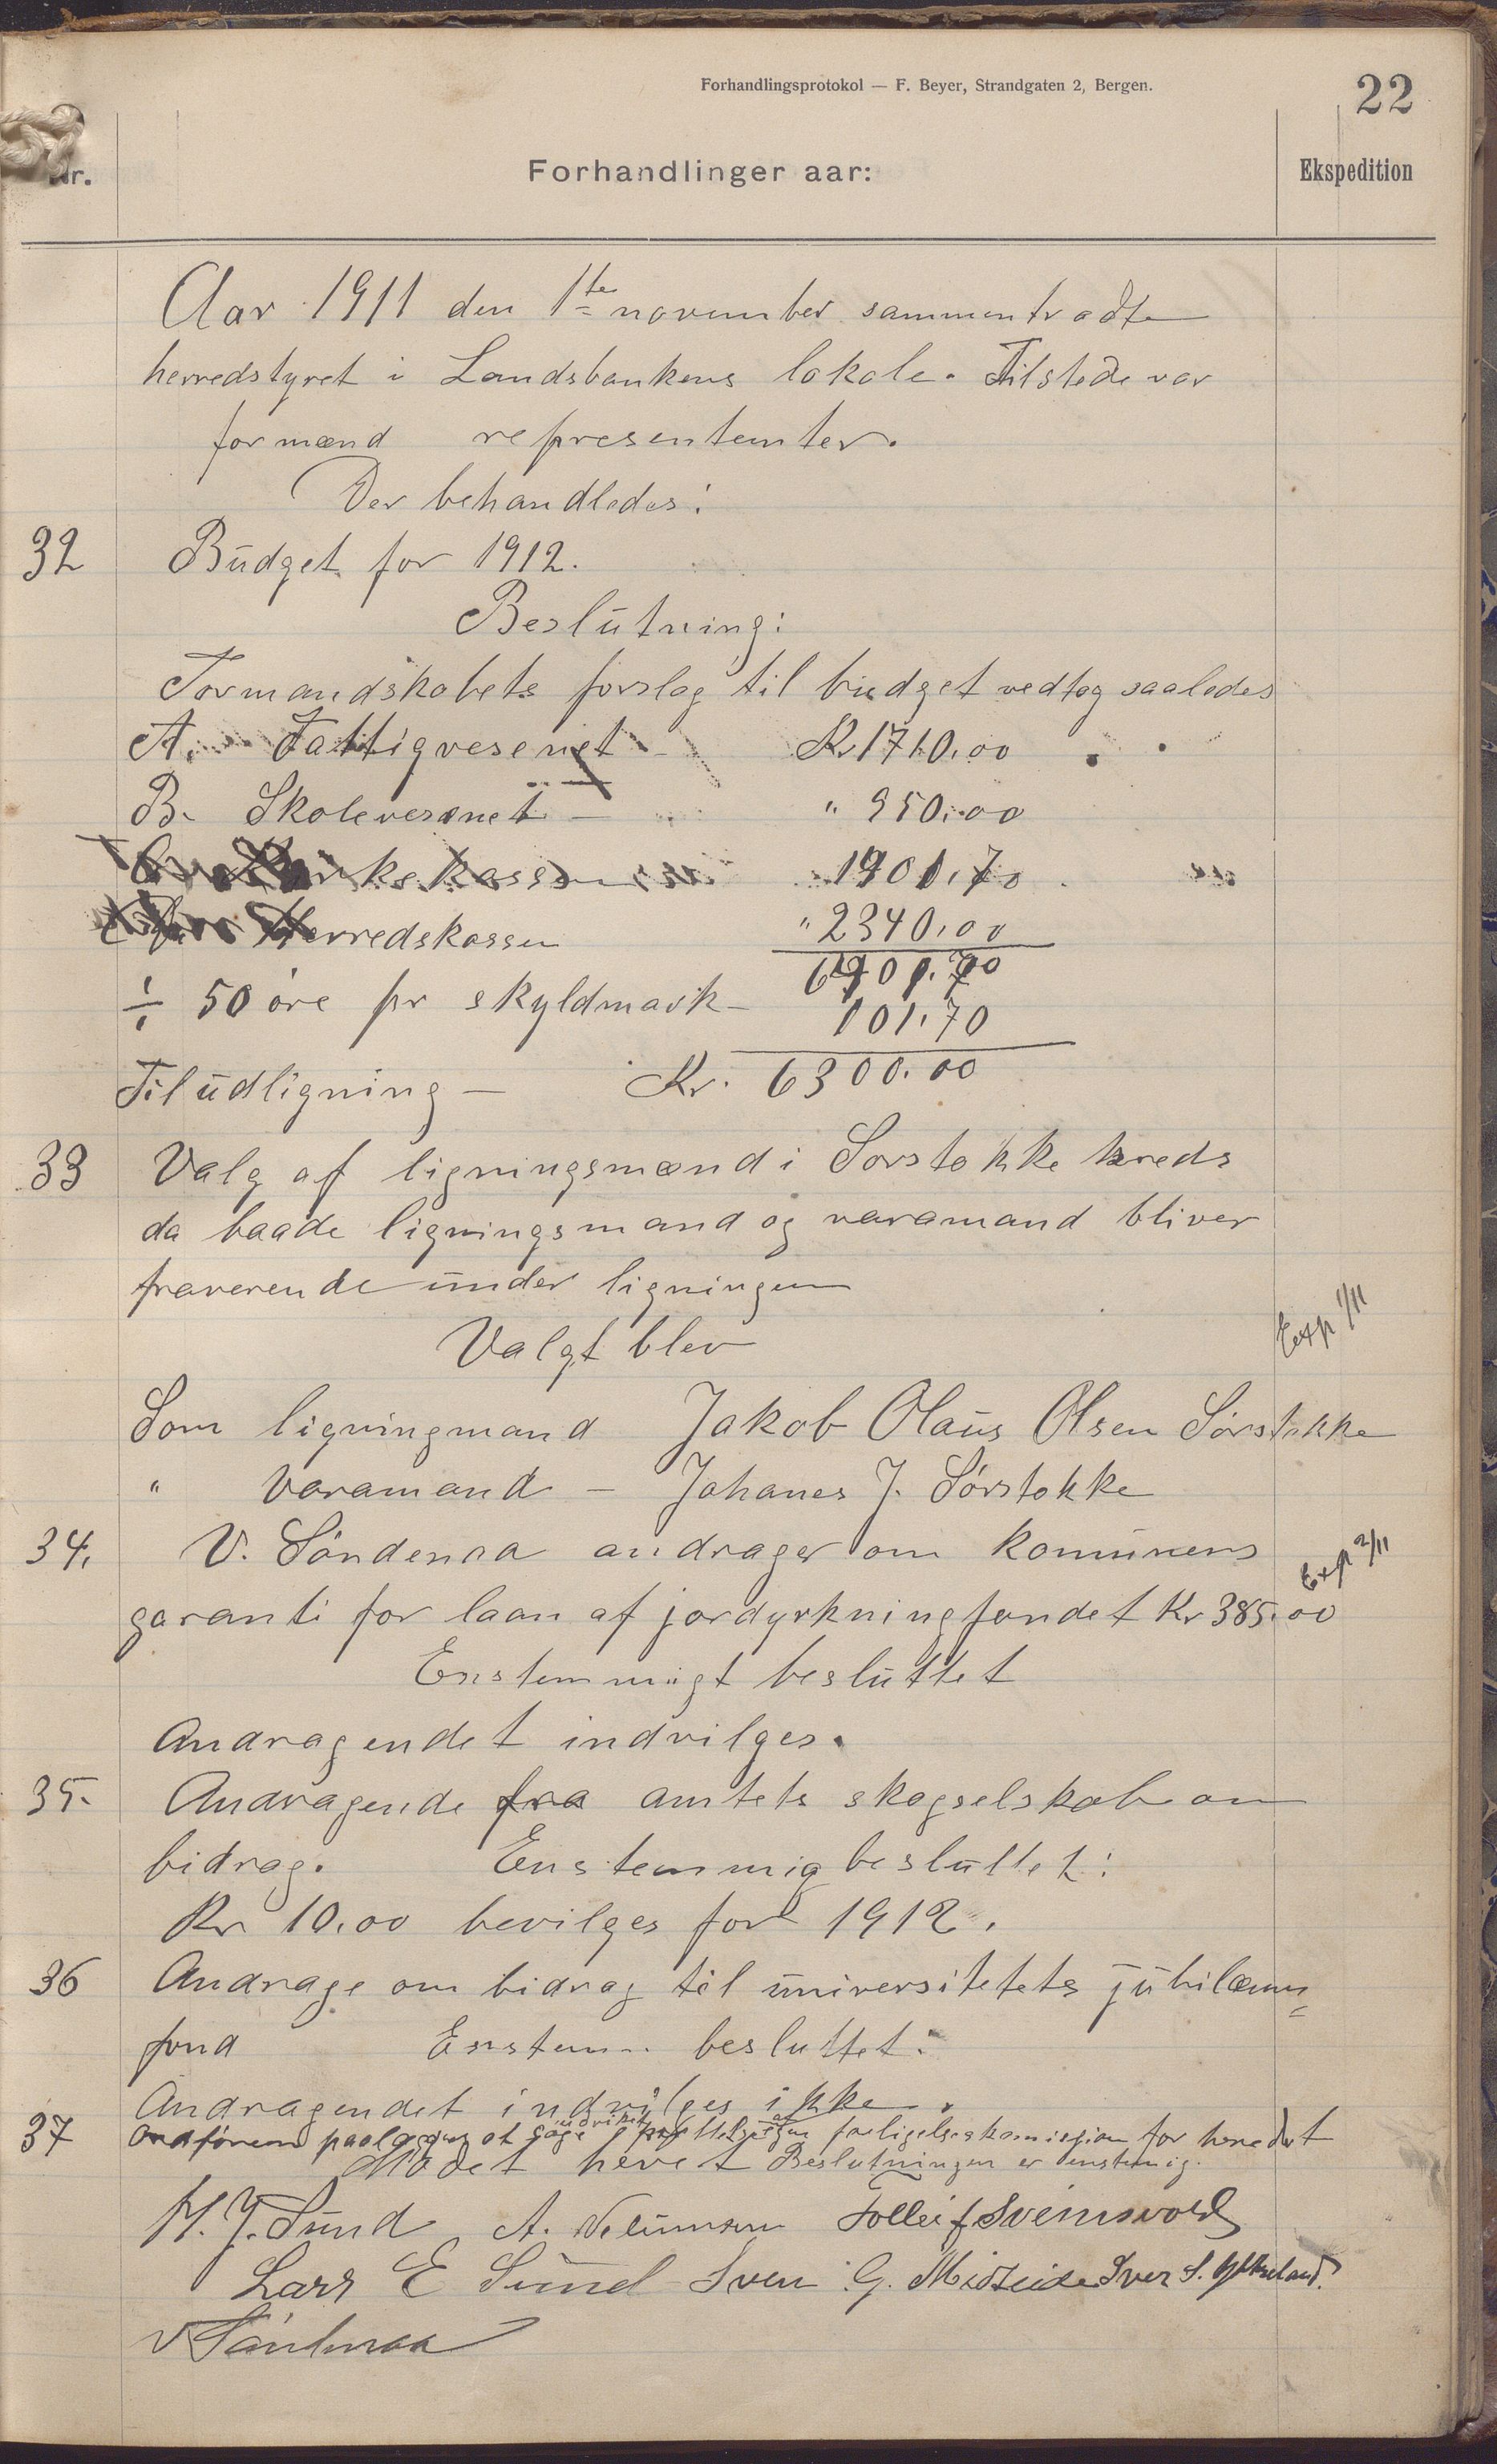 Forhandlingsprotokol — F. Beyer, Strandgaten 2, Bergen.
22
Nr.
Forhandlinger aar:
Ekspedition
Aar 1911 den 1te november sammentradte
herredstyret i Landsbankens lokale. Tilstede var
formænd representemter.
Der behandledes:
32 Budget for 1912.
Beslutning:
Formandskabets forslag til budget vedtog saaledes
A. Fattigvesenet - Kr 1710,00
B. Skolevesenet - " 950,00
Kirkekassen 1901,70
Herredskassen " 2340,00
6901,70
÷ 50 øre pr skyldmark - 101,70
Til udligning - Kr. 6300.00
33 Valg af ligningsmænd i Sørstokke kreds
da baade ligningsmand og varamand bliver
fraverende under ligningen
Exp 1/11
Valgt blev
Som ligningmand Jakob Olaus Olsen Sørstokke
" Varamand - Johanes J. Sørstokke
34, V. Söndenaa andrager om komunens
Exp 2/11
garanti for laan af jordyrkningfondet Kr 385,00
Enstemmigt besluttet
Andragendet indvilges.
35. Andragende fra amtets skogselskab om
bidrag. Enstemmig besluttet:
Kr 10,00 bevilges for 1912.
36 Andrage om bidrag til universitetets jubilæum=
fond Enstem. besluttet:
Andragendet indvilges ikke.
37 Ordføreren paalægges at søge udvirket forligelseskomission for herredet
Mødet hevet Beslutningen er enstemig.
H. J. Sund A. Tolleif Sveinsvold
Lars E Sund Sven G. Midteide Iver S.
V Söndenaa